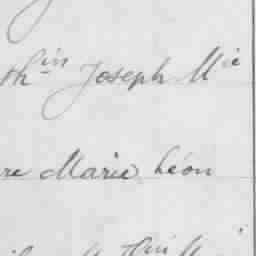 thin Joseph Mie
re Marie Léon